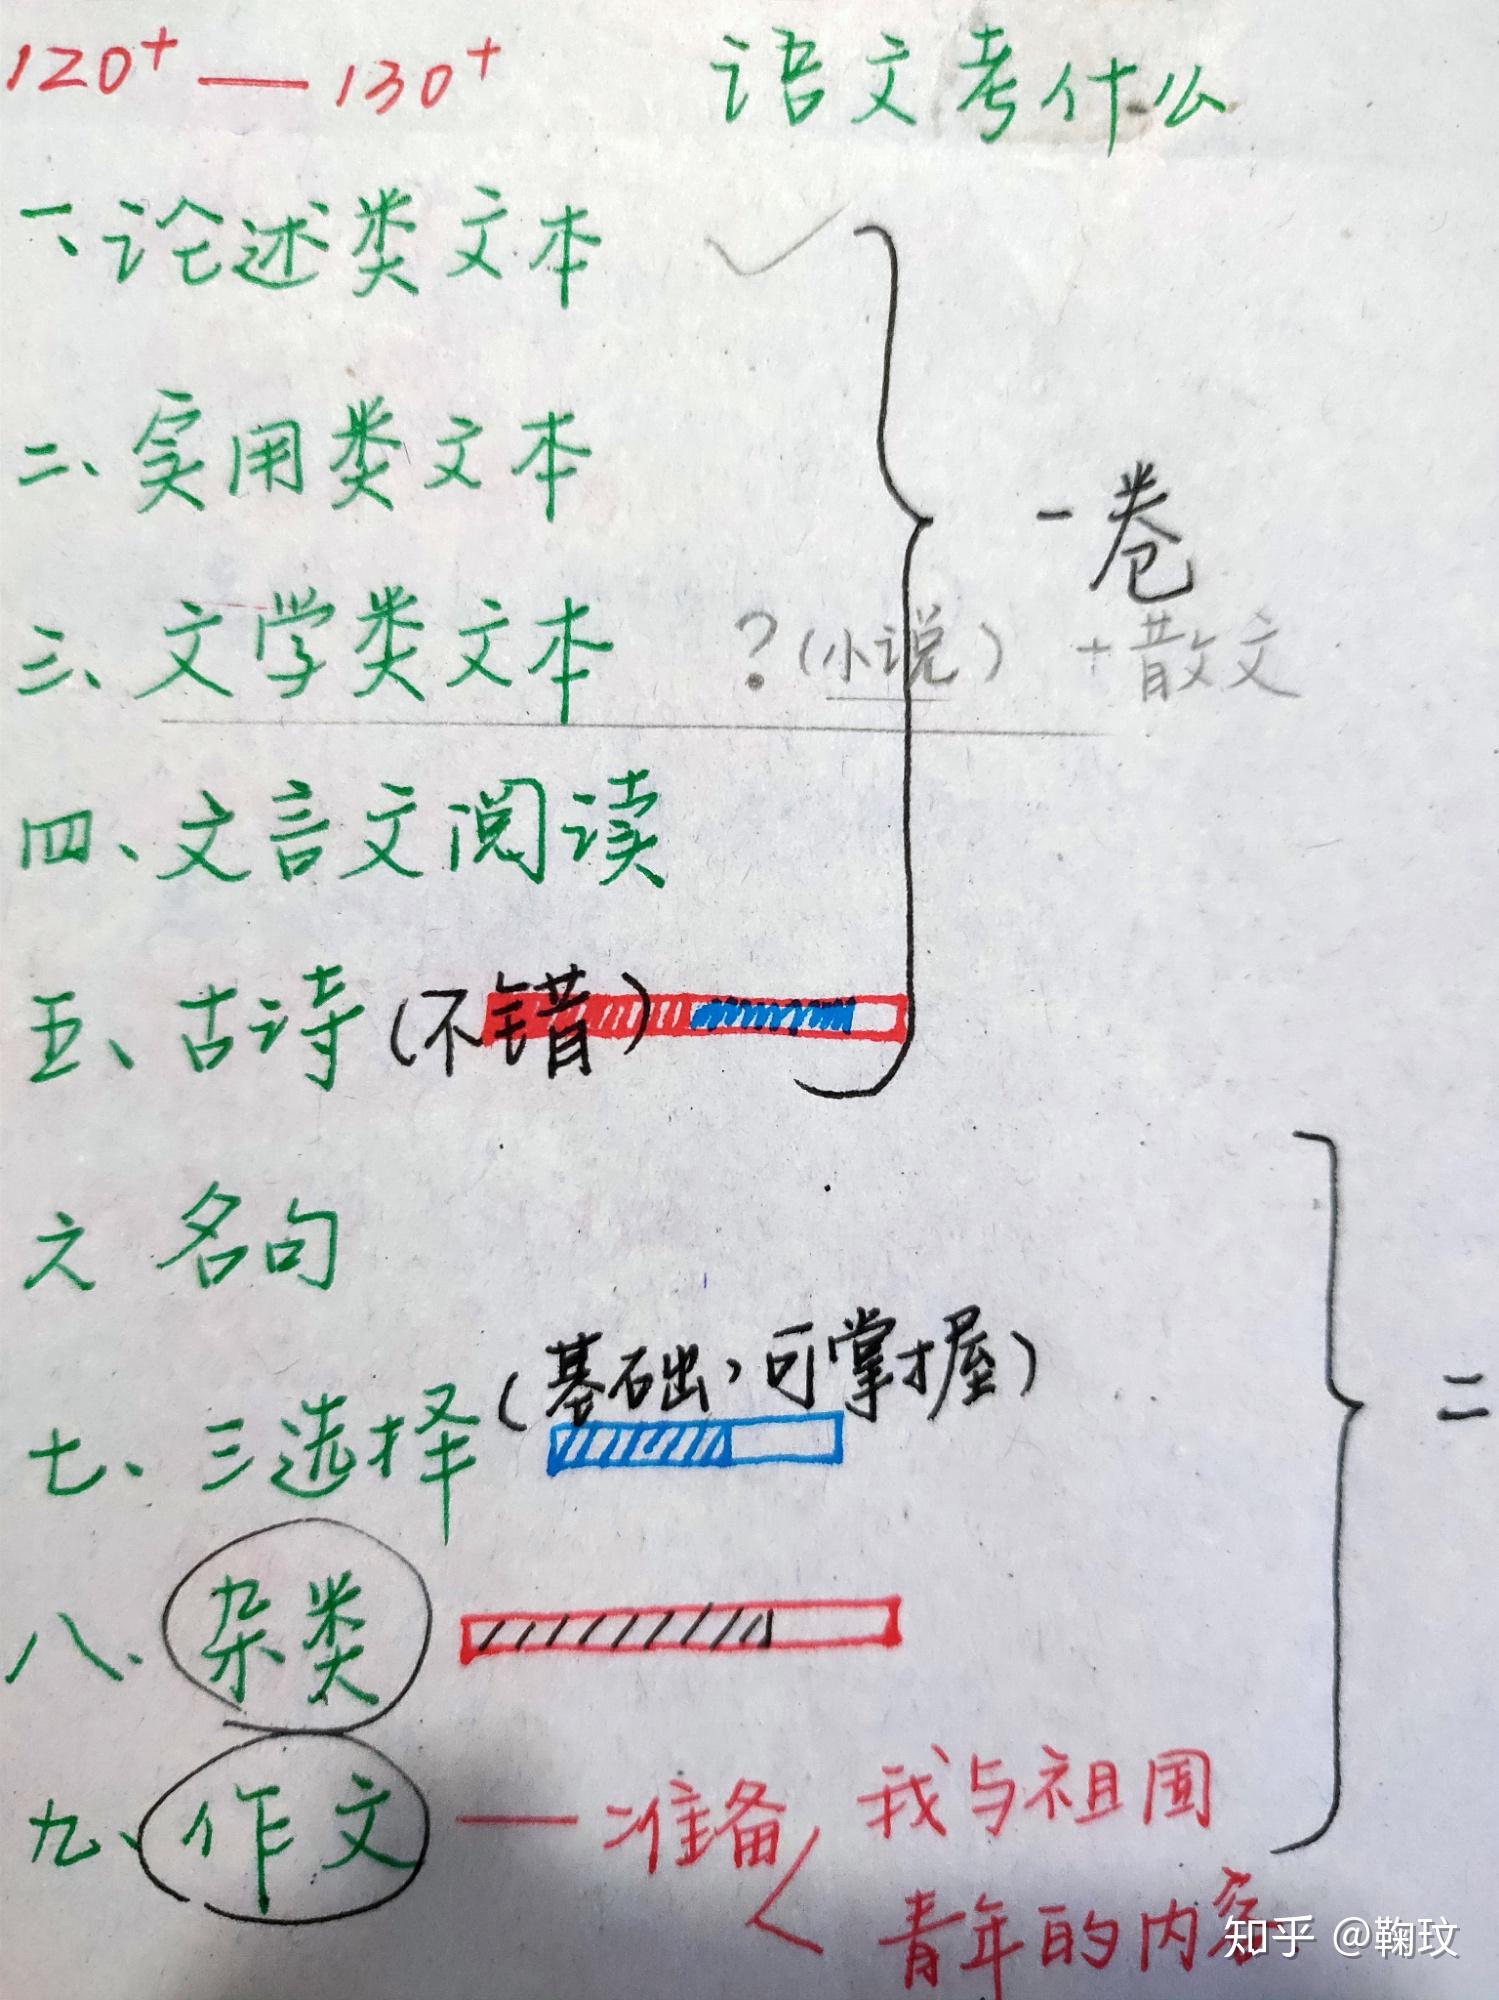 120⁺ — 130⁺ 语文考什么
一、论述类文本
二、实用类文本
一卷
三、文学类文本 ?(小说) +散文
四、文言文阅读
五、古诗(不错)
六 名句
七、三选择(基础,可掌握)
二
八、杂类
九、作文 — 准备 我与祖国
青年的内容
知乎 @鞠玟